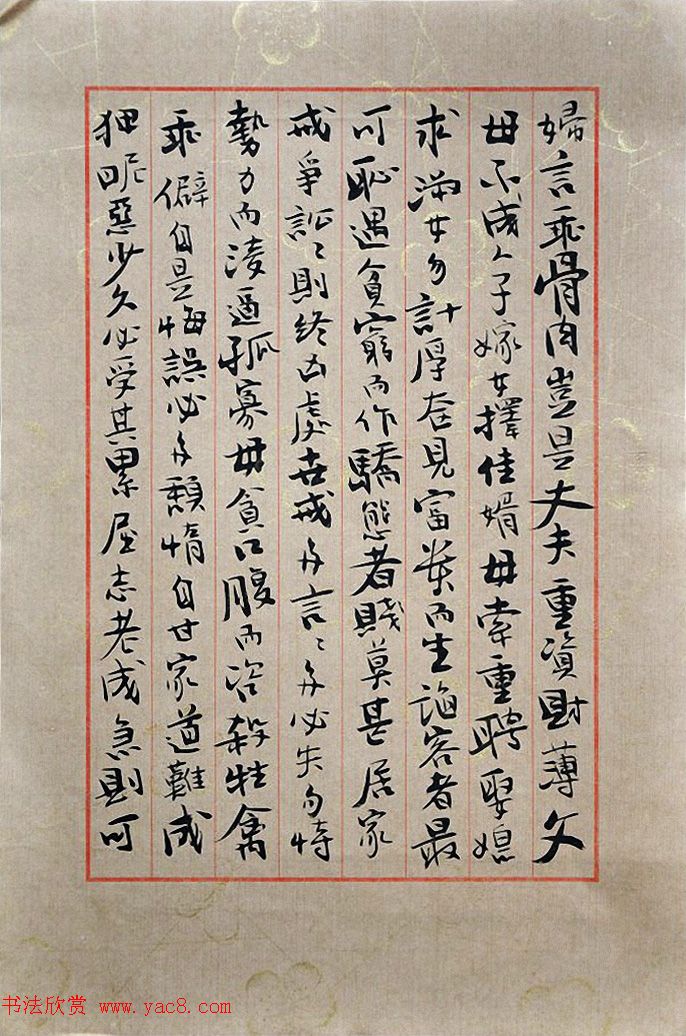 婦言乖骨肉豈是丈夫重資財薄父
母不成人子嫁女擇佳婿毋索重聘娶媳
求淑女勿計厚奩見富貴而生諂容者最
可恥遇貧窮而作驕態者賤莫甚居家
戒爭訟〻則終凶處世戒多言〻多必失勿恃
勢力而淩逼孤寡毋貪口腹而恣殺牲禽
乖僻自是悔誤必多頹惰自甘家道難成
狎昵惡少久必受其累屈志老成急則可
书法欣赏 www.yac8.com